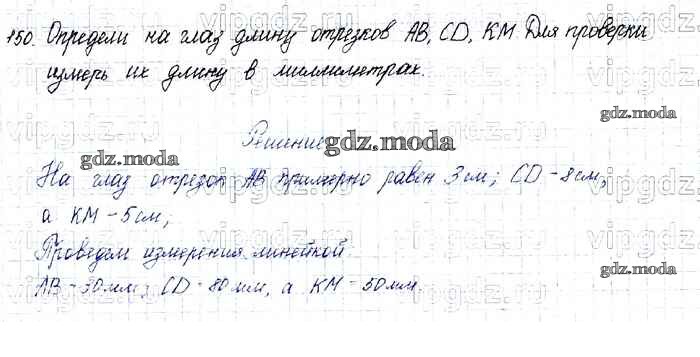 150. Определи на глаз длину отрезков AB, CD, KM. Для проверки
измерь их длину в миллиметрах.
Решение
На глаз отрезок AB примерно равен 3 см; CD - 8 см,
а KM - 5 см;
Проведем измерения линейкой.
AB - 30 мм; CD - 80 мм, а KM - 50 мм.
gdz.moda
gdz.moda
gdz.moda
gdz.moda
vipgdz.ru